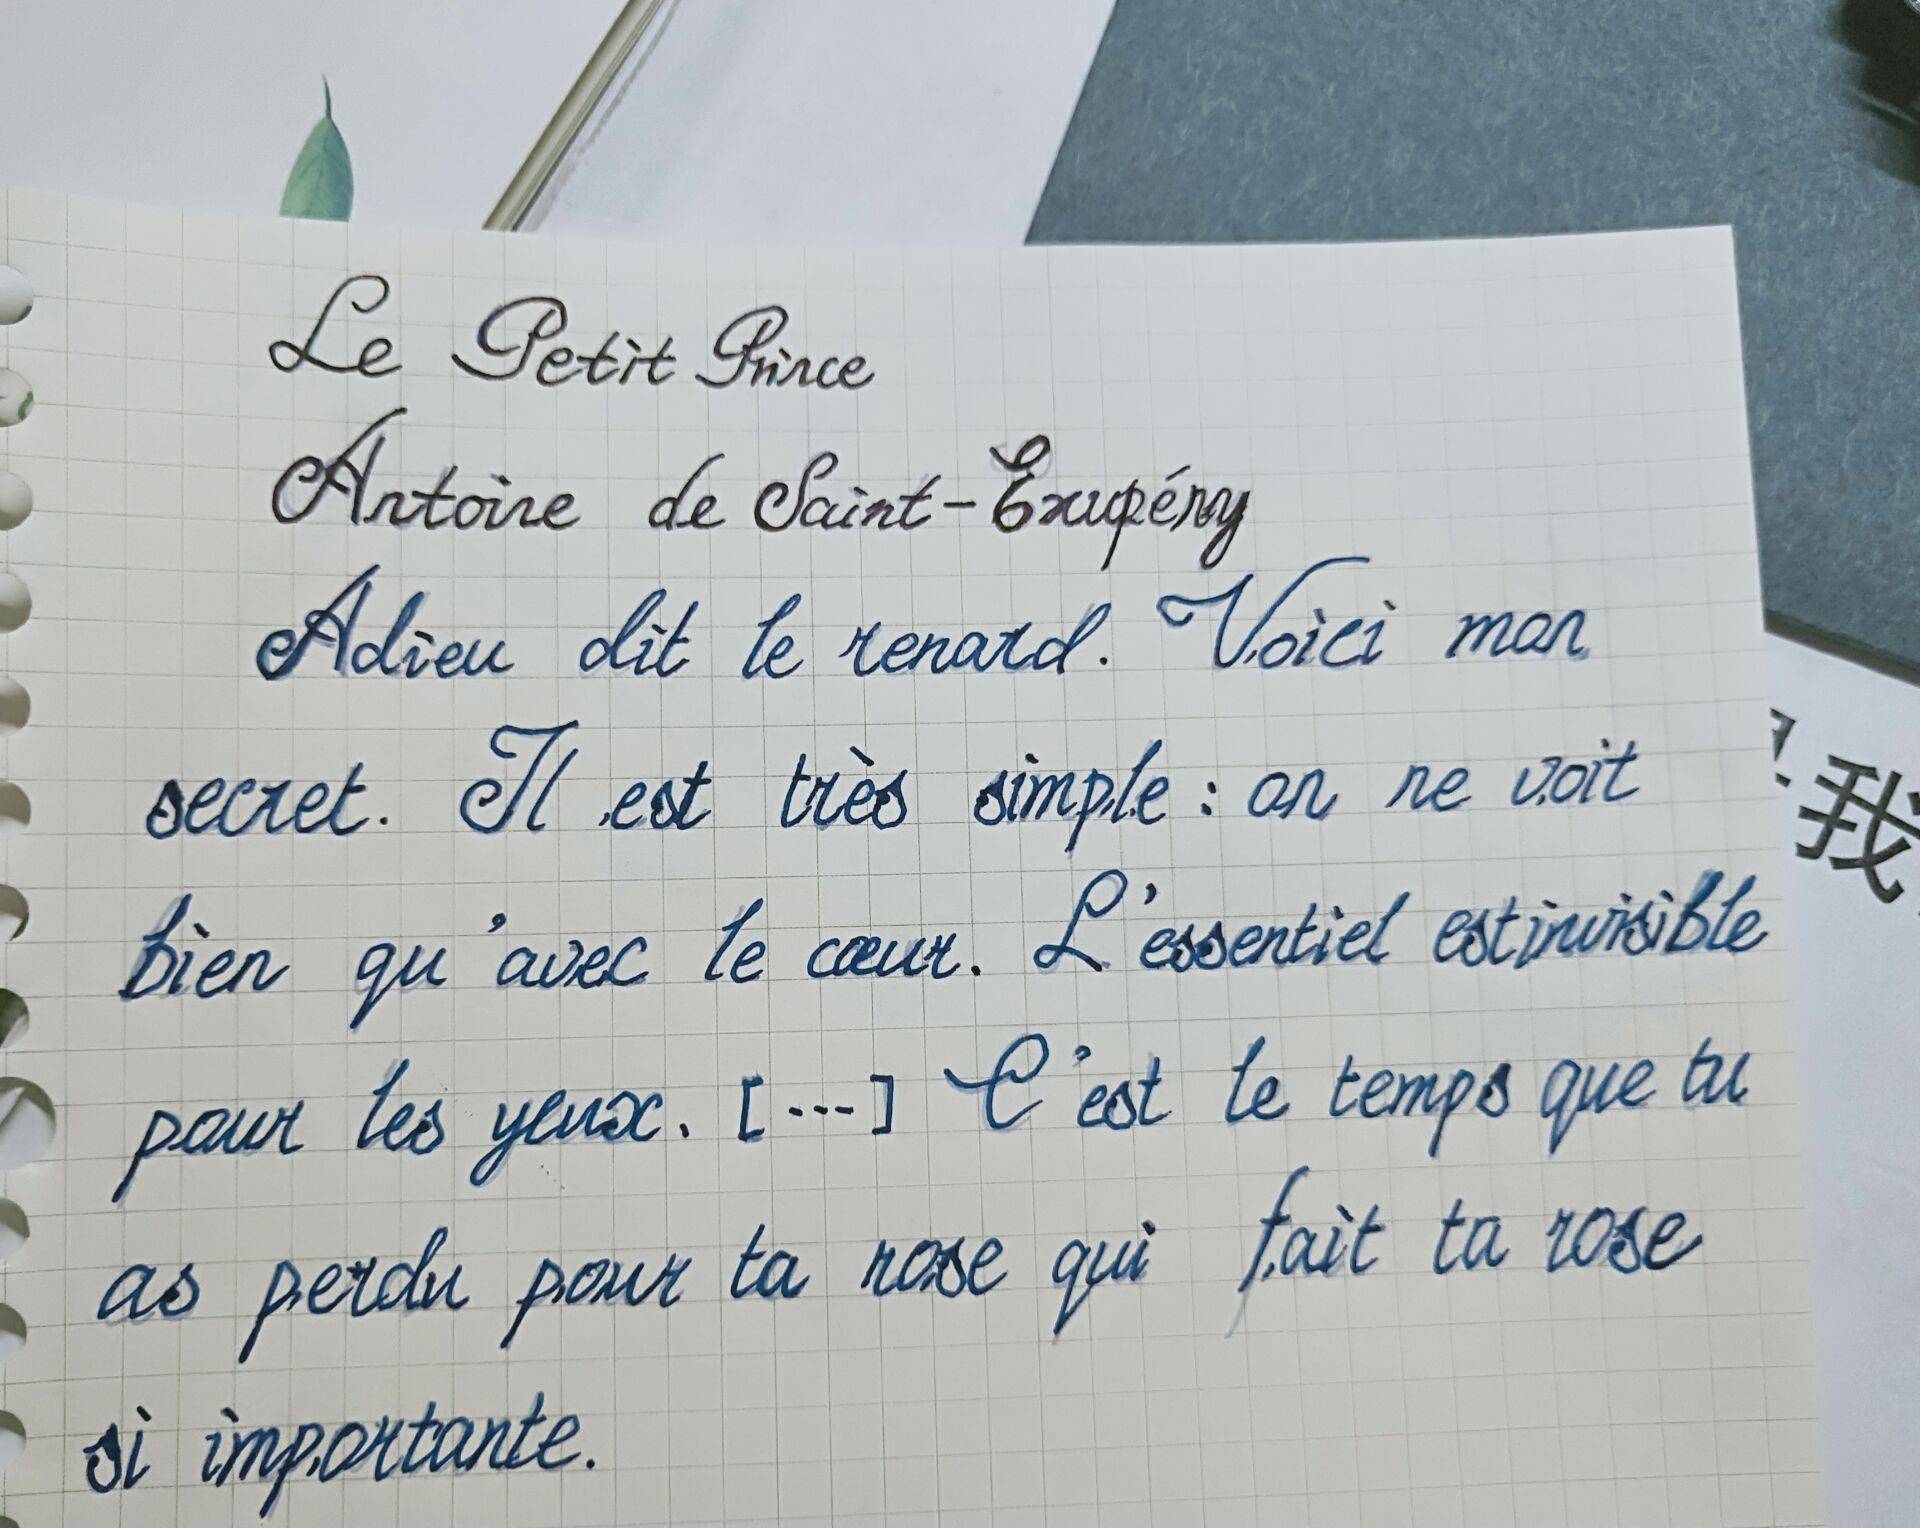 Le Petit Prince
Antoine de Saint-Exupéry
Adieu dit le renard. Voici mon
secret. Il est très simple : on ne voit
bien qu'avec le cœur. L'essentiel est invisible
pour les yeux. [---] C'est le temps que tu
as perdu pour ta rose qui fait ta rose
si importante.
我